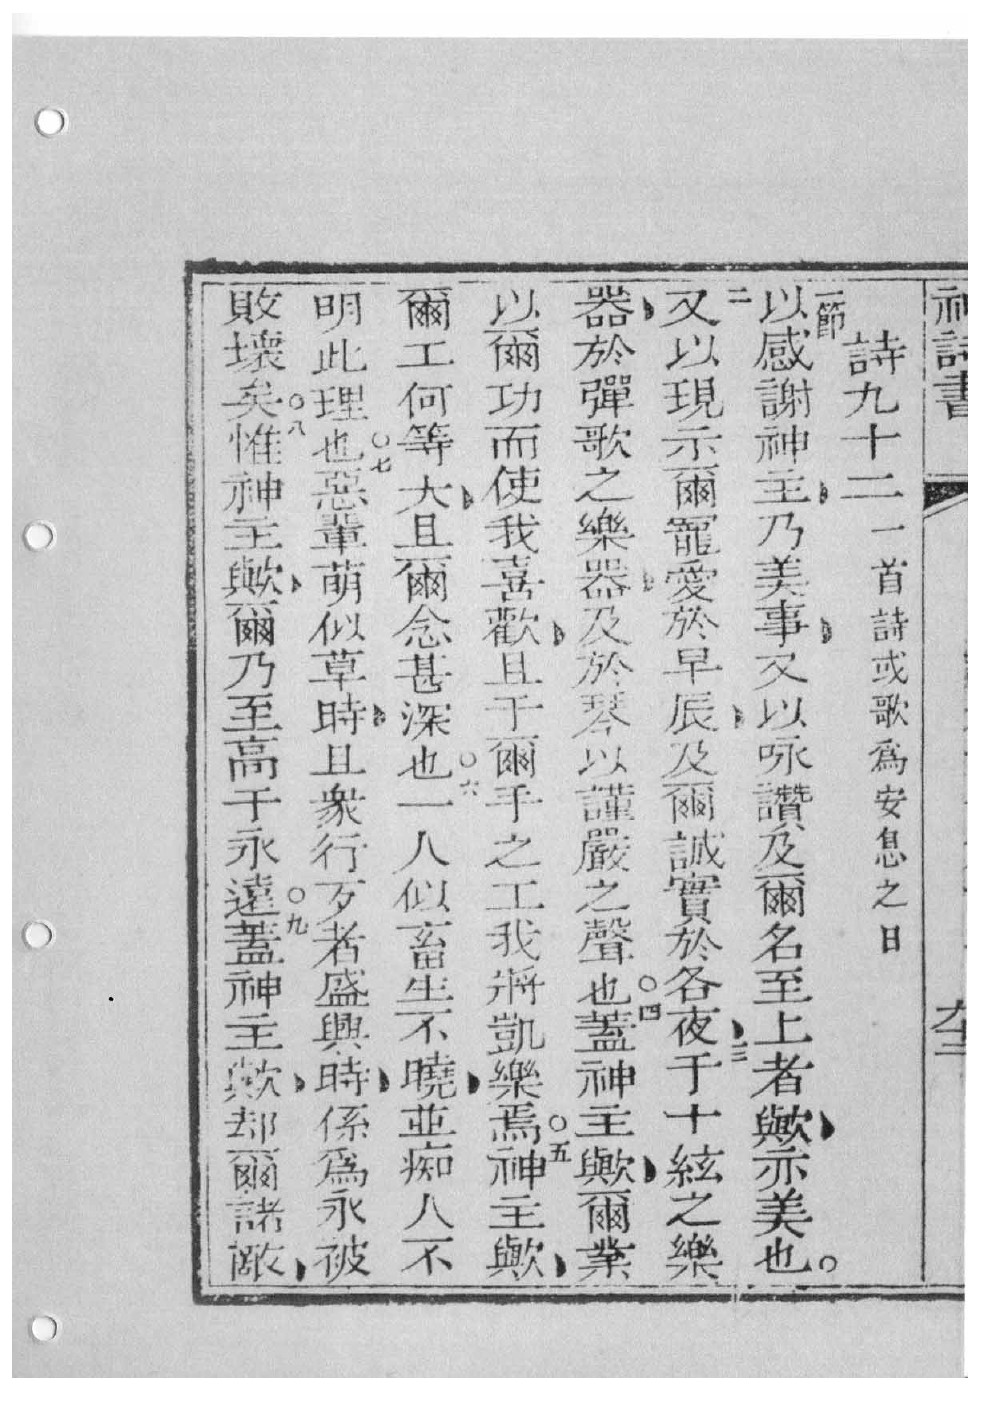 神詩書
詩九十二一首詩或歌爲安息之日
一節以感謝神主乃美事又以咏讚及爾名至上者歟亦美也○
二又以現示爾寵愛於早辰及爾誠實於各夜三于十絃之樂
器於彈歌之樂器及於琴以謹嚴之聲也○四蓋神主歟爾業
以爾功而使我喜歡且于爾手之工我將凱樂焉○五神主歟
爾工何等大且爾念甚深也○六一人似畜生不曉並痴人不
明此理也○七惡輩萌似草時且衆行歹者盛興時係爲永被
敗壞矣○八惟神主歟爾乃至高于永遠○九蓋神主歟却爾諸敵